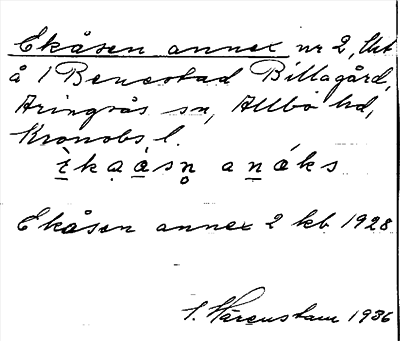 Ekåsen annex nr 2, Utt
å 1 Benestad Billagård,
Aringsås sn, Allbo hd,
Kronobs. l.
ɛkaåsn anɛ́ks
Ekåsen annex 2 kb 1928
S. Härenstam 1936